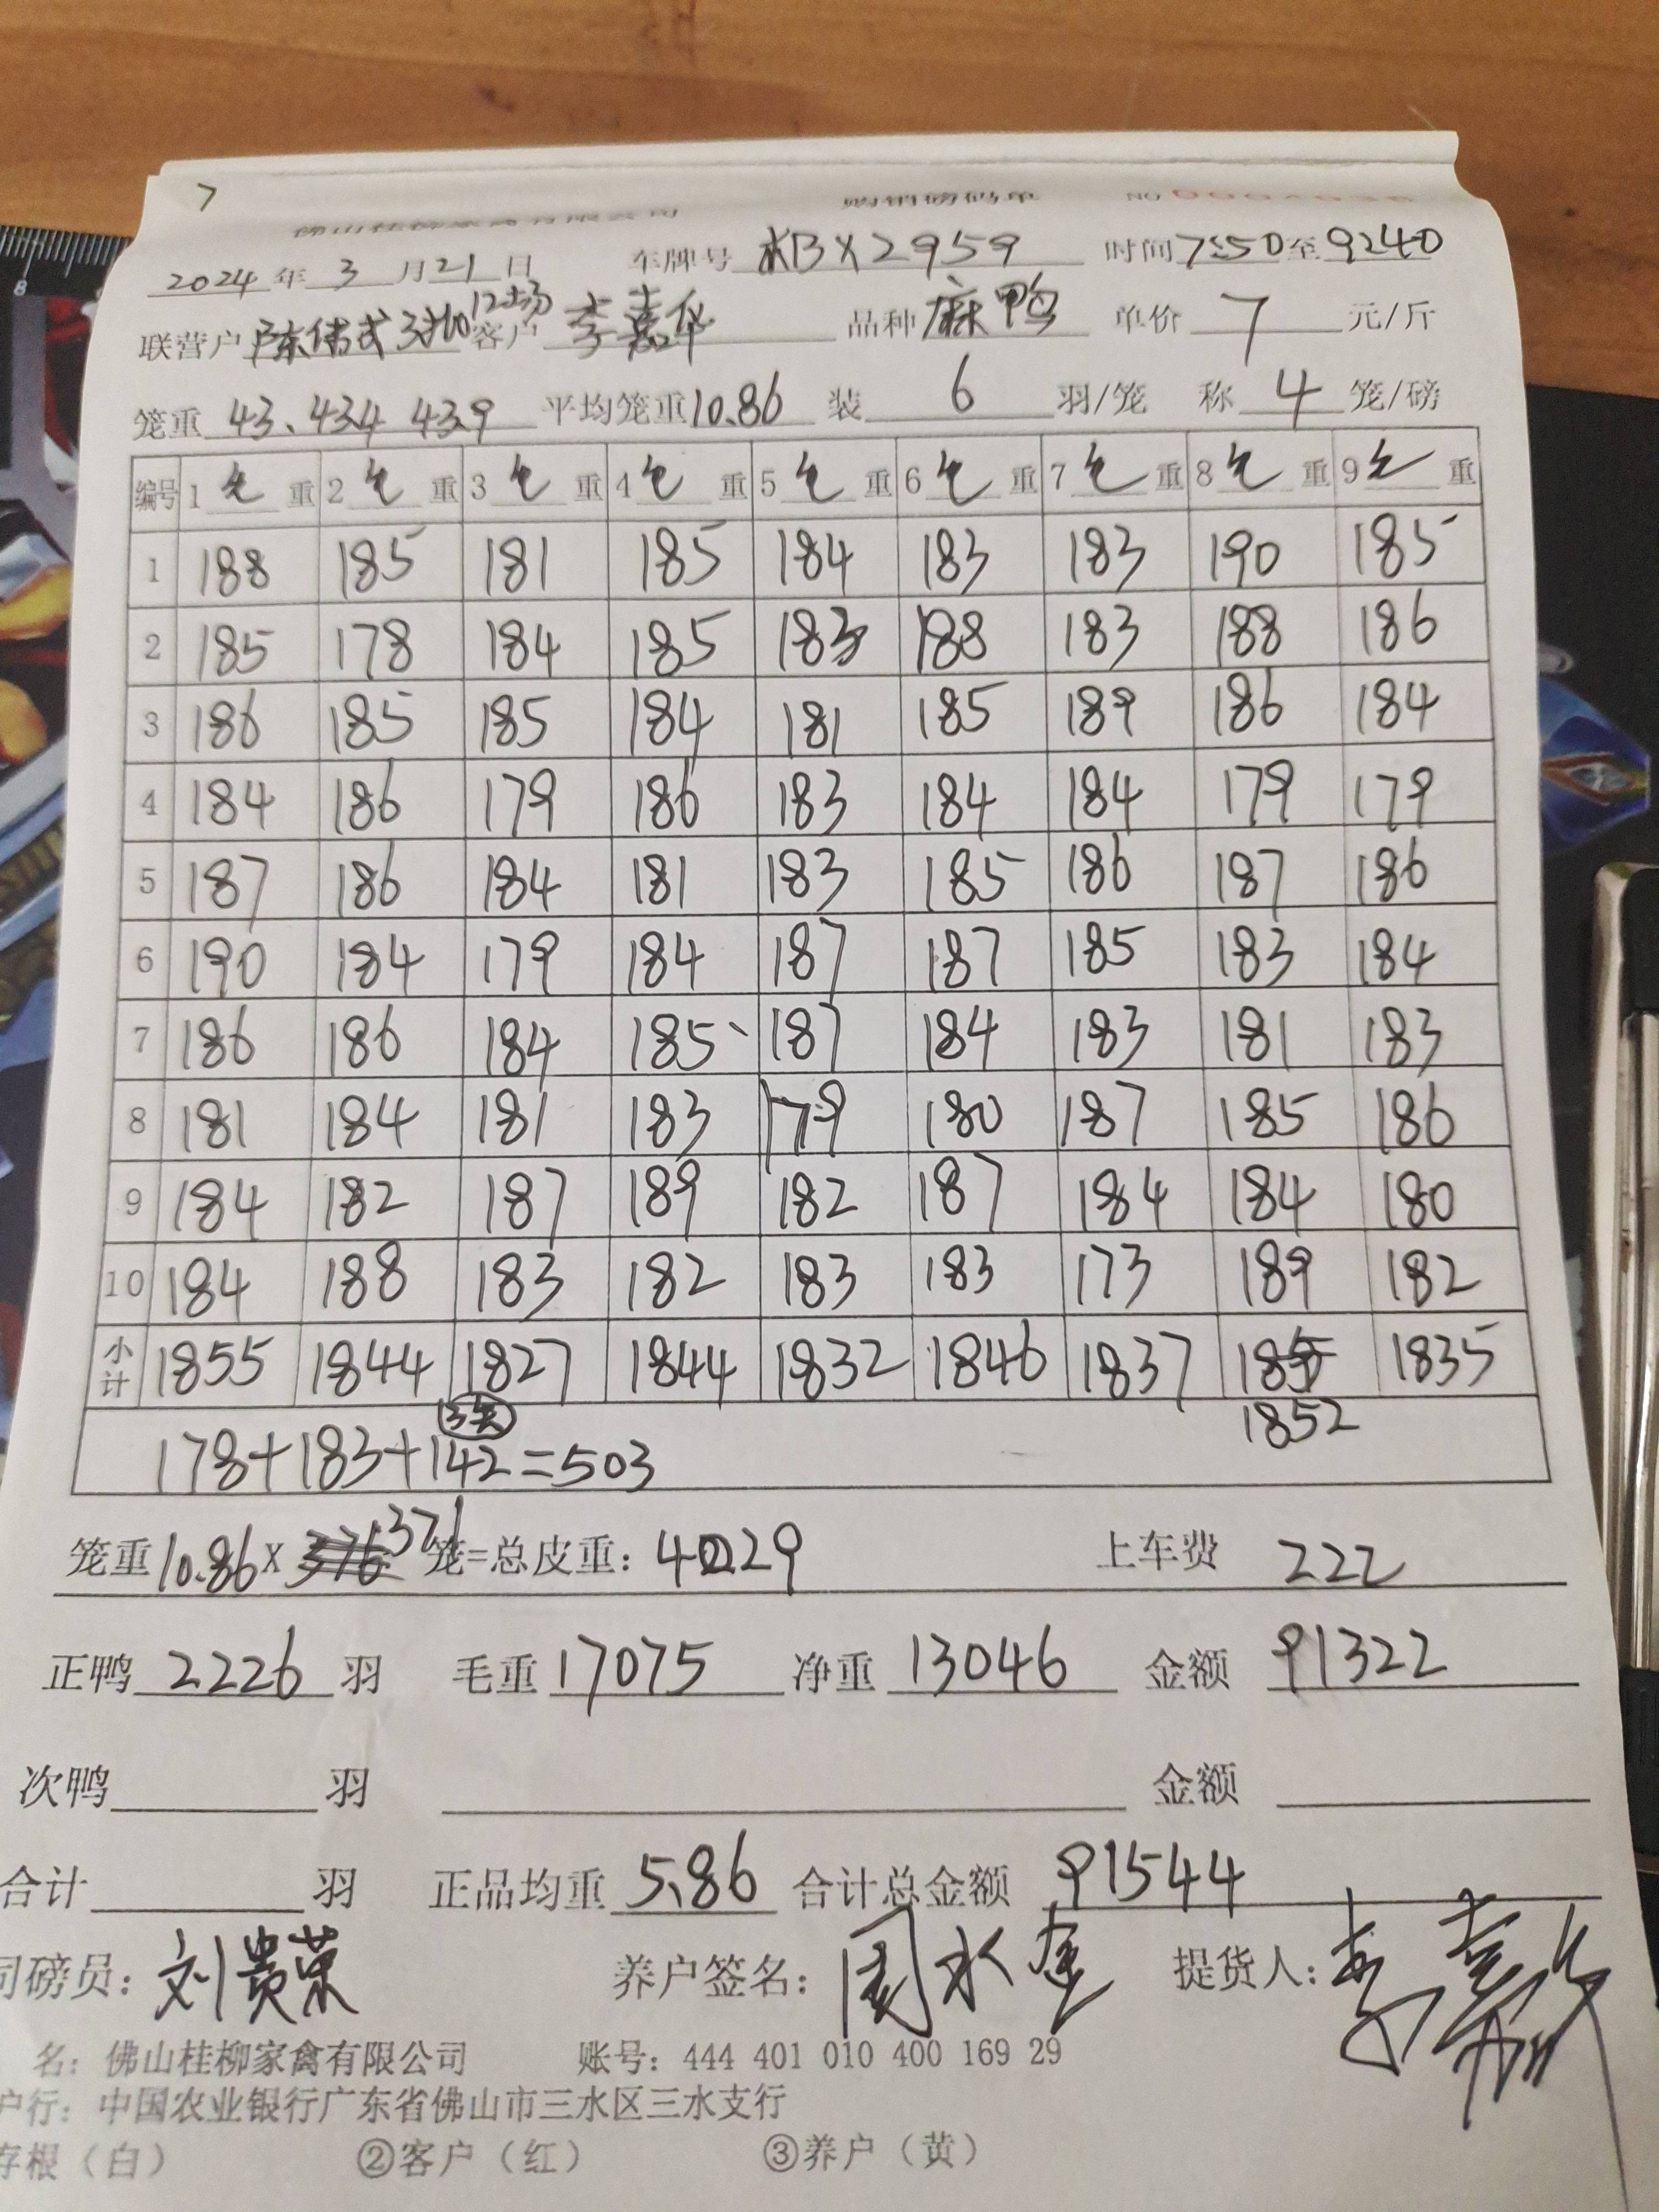 7
购销磅码单 NO
2024年3月21日 车牌号 粤BX2959 时间7:50至9:40
联营户 陈伟武3批12场 客户 李嘉华 品种 麻鸭 单价 7 元/斤
笼重 43、434 439 平均笼重10.86 装 6 羽/笼 称 4 笼/磅
编号 1 毛 重 2 毛 重 3 毛 重 4 毛 重 5 毛 重 6 毛 重 7 毛 重 8 毛 重 9 毛 重
1 188 185 181 185 184 183 183 190 185
2 185 178 184 185 183 188 183 188 186
3 186 185 185 184 181 185 189 186 184
4 184 186 179 186 183 184 184 179 179
5 187 186 184 181 183 185 186 187 186
6 190 184 179 184 187 187 185 183 184
7 186 186 184 185 187 184 183 181 183
8 181 184 181 183 179 180 187 185 186
9 184 182 187 189 182 187 184 184 180
10 184 188 183 182 183 183 173 189 182
小计 1855 1844 1827 1844 1832 1846 1837 1835
1852
178+183+142=503
笼重10.86X 371 笼=总皮重：4029 上车费 222
正鸭 2226 羽 毛重 17075 净重 13046 金额 91322
次鸭 羽 金额
合计 羽 正品均重 5.86 合计总金额 91544
司磅员：刘贵荣 养户签名： 提货人：李嘉
名：佛山桂柳家禽有限公司 账号：444 401 010 400 169 29
户行：中国农业银行广东省佛山市三水区三水支行
存根（白） ②客户（红） ③养户（黄）